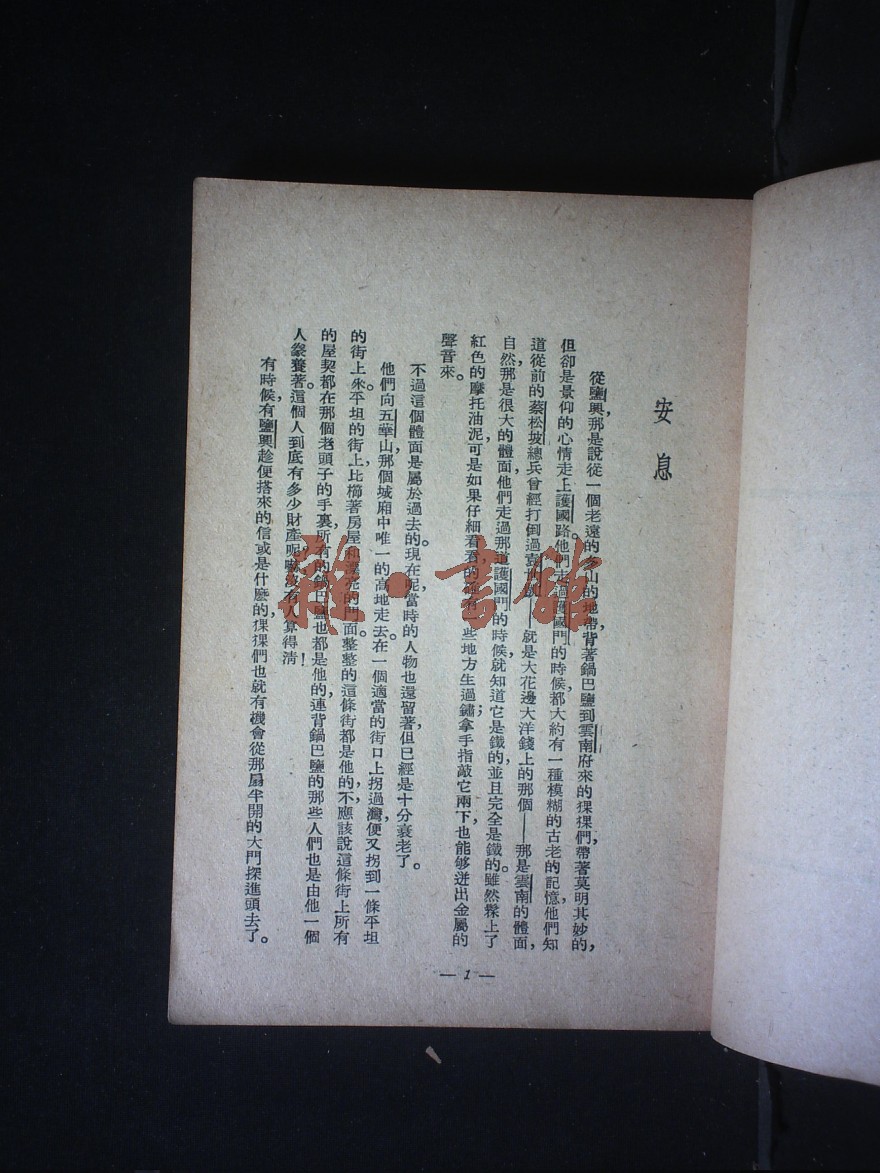 安息
從鹽興，那是說從一個老遠的多山的地帶，背著鍋巴鹽到雲南府來的猓猓們，帶著莫明其妙的，
但卻是景仰的心情走上護國路。他們走過護國門的時候，都大約有一種模糊的古老的記憶，他們知
道從前的蔡松坡總兵曾經打倒過袁世凱——就是大花邊大洋錢上的那個——那是雲南的體面，
自然那是很大的體面。他們走過那道護國門的時候，就知道它是鐵的，並且完全是鐵的。雖然髹上了
紅色的摩托油泥，可是如果仔細看看，的確有一些地方生過鏽；拿手指敲它兩下，也能够迸出金屬的
聲音來。
不過這個體面是屬於過去的。現在呢，當時的人物也還留著，但已經是十分衰老了。
他們向五華山，那個城廂中唯一的高地走去。在一個適當的街口上拐過灣，便又拐到一條平坦
的街上。平坦的街上比櫛著房屋和漂亮的門面。整整的這條街都是他的，不，應該說這條街上所有
的屋契都在那個老頭子的手裏，所有的鍋巴鹽也都是他的，連背鍋巴鹽的那些人們也是由他一個
人豢養著。這個人到底有多少財產呢？嘿，沒有人算得清！
有時候，有鹽興趁便搭來的信或是什麽的，猓猓們也就有機會從那扇半開的大門探進頭去了。
— 1 —
雜·書館